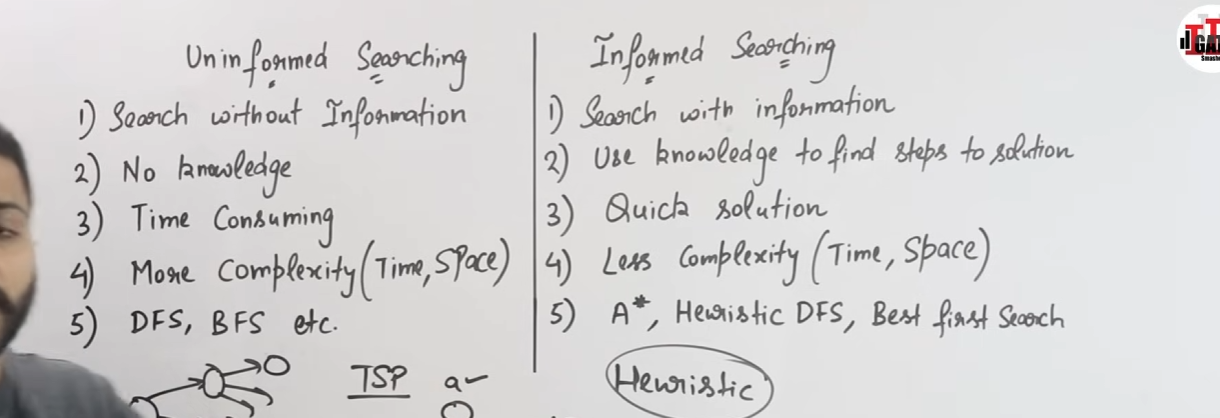 Uninformed Searching
1) Search without Information
2) No knowledge
3) Time Consuming
4) More Complexity (Time, Space)
5) DFS, BFS etc.
TSP a
Informed Searching
1) Search with information
2) Use knowledge to find steps to solution
3) Quick solution
4) Less Complexity (Time, Space)
5) A*, Heuristic DFS, Best first Search
Heuristic